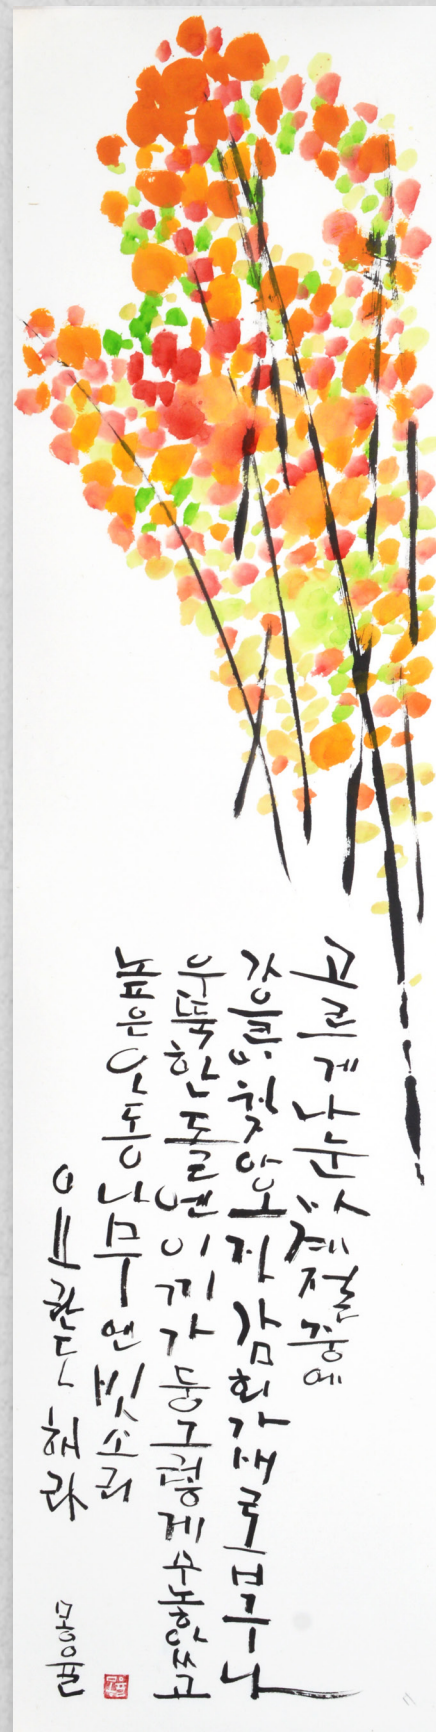 고르게 나눈 사계절 중에
가을이 찾아오자 감회가 새롭구나
우뚝한 돌엔 이끼가 둥그렇게 수놓았고
높은 오동나무엔 빗소리
요란도 해라